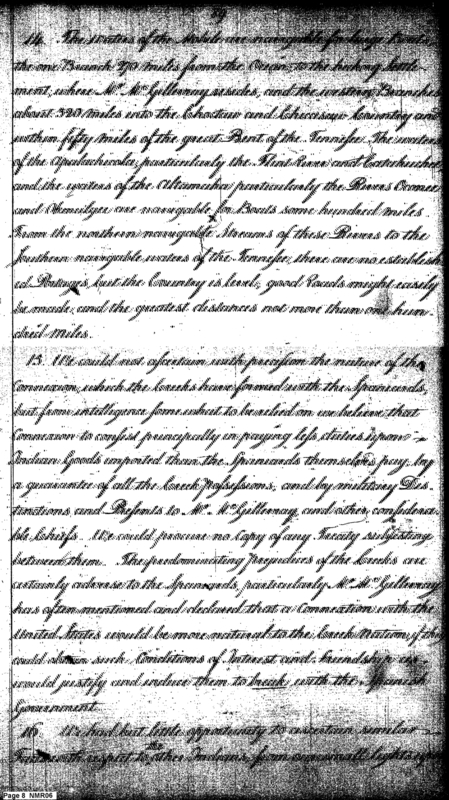 29
14. The Waters of the Mobile are navigable for large Boats,
the one Branch 270 miles from the Ocean, to the hickory settle-
ment, where Mr. McGillevray resides, and the western Branches
about 320 miles into the Choctaw and Chicasaw Country and
within fifty miles of the great Bent of the Tennessee. The waters
of the Apalachicola, particularly the Flint River and Catahuchee
and the waters of the Altamaha particularly the Rivers Oconee
and Okmulgee are navigable for Boats some hundred miles.
From the northern navigable Streams of these Rivers to the
Southern navigable waters of the Tennessee, there are no establish-
ed Portages, but the Country is level, good Roads might easily
be made, and the greatest distances not more than one hun-
dred miles.
15. We could not ascertain with precision the nature of the
Connexion, which the Creeks have formed with the Spaniards,
but from intelligence somewhat to be relied on we believe that
Connexion to consist principally in paying less duties upon
Indian Goods imported than the Spaniards themselves pay, by
a guarantee of all the Creek possessions, and by military Dis-
tinctions, and Presents to Mr. McGillevray and other considera-
ble Chiefs. We could procure no Copy of any Treaty subsisting
between them. The predominating prejudices of the Creeks are
certainly adverse to the Spaniards, particularly Mr. McGillevray
has often mentioned and declared that a Connexion with the
United States would be more natural to the Creek Nation, if they
could obtain such Conditions of Interest and Friendship as
would justify and induce them to break with the Spanish
Government
16. We had but little opportunity to ascertain similar
Facts with respect to the other Indians, from our small lights
Page 8 NMR06